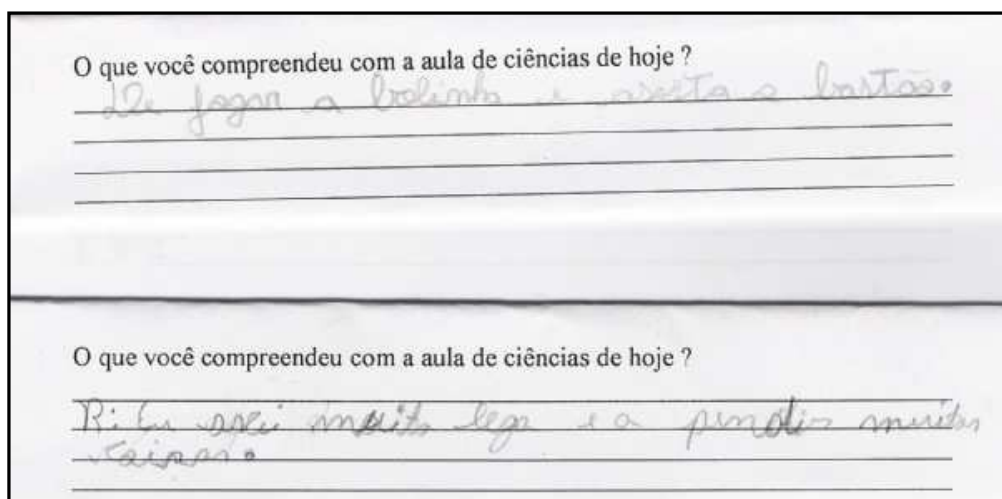 O que você compreendeu com a aula de ciências de hoje ?
jogar a bolinha e a bastão.
O que você compreendeu com a aula de ciências de hoje ?
R: Eu axei muito lega e a pendir muitas